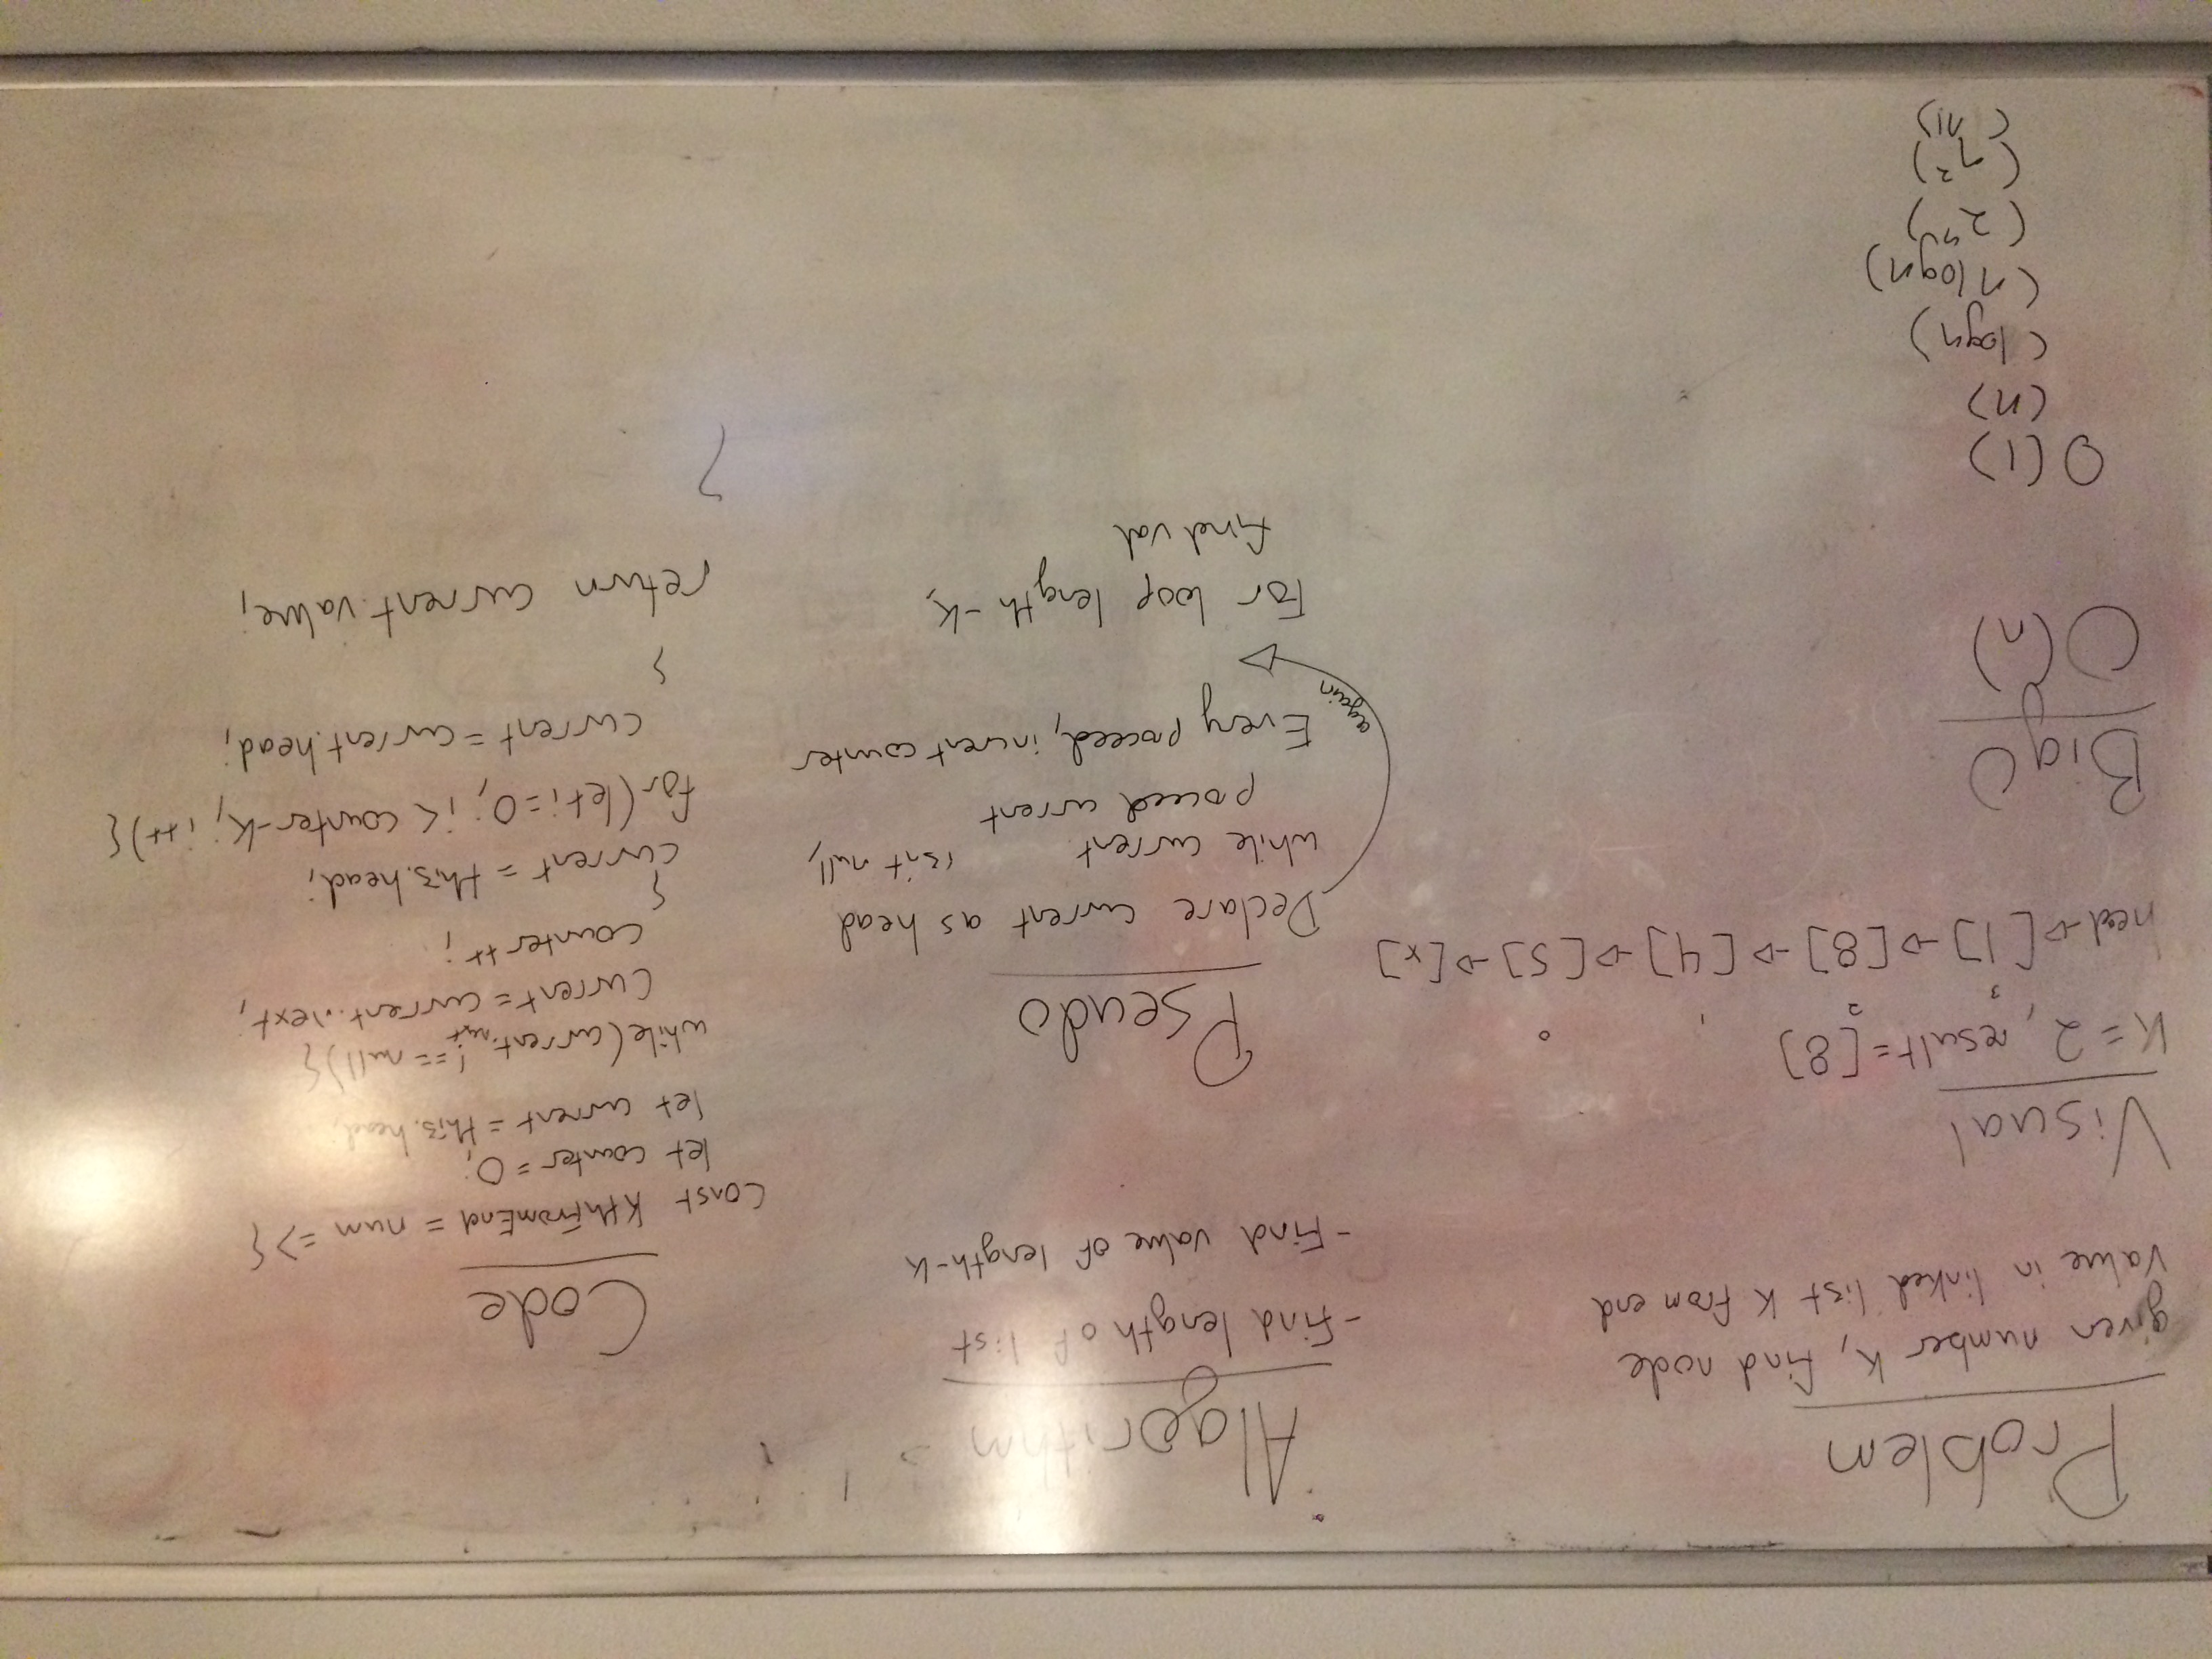 Problem
given number K, find node
value in linked list K from end
Visual
K=2, result=[8]
3 2 1 0
head→[1]→[8]→[4]→[5]→[x]
Big O
O(n)
O(1)
(n)
(logn)
(nlogn)
(2ⁿ)
(n²)
(n!)
Algorithm
-Find length of list
-Find value of length-K
Pseudo
Declare current as head
while current isn't null,
proceed current
Every proceed, incrent counter
again
For loop length -K,
find val
Code
const KthFromEnd = num => {
let counter = 0;
let current = this.head;
while(current.next !== null){
current = current.next;
counter++;
}
current = this.head;
for(let i=0; i< counter-K; i++){
current = current.head;
}
return current.value;
}